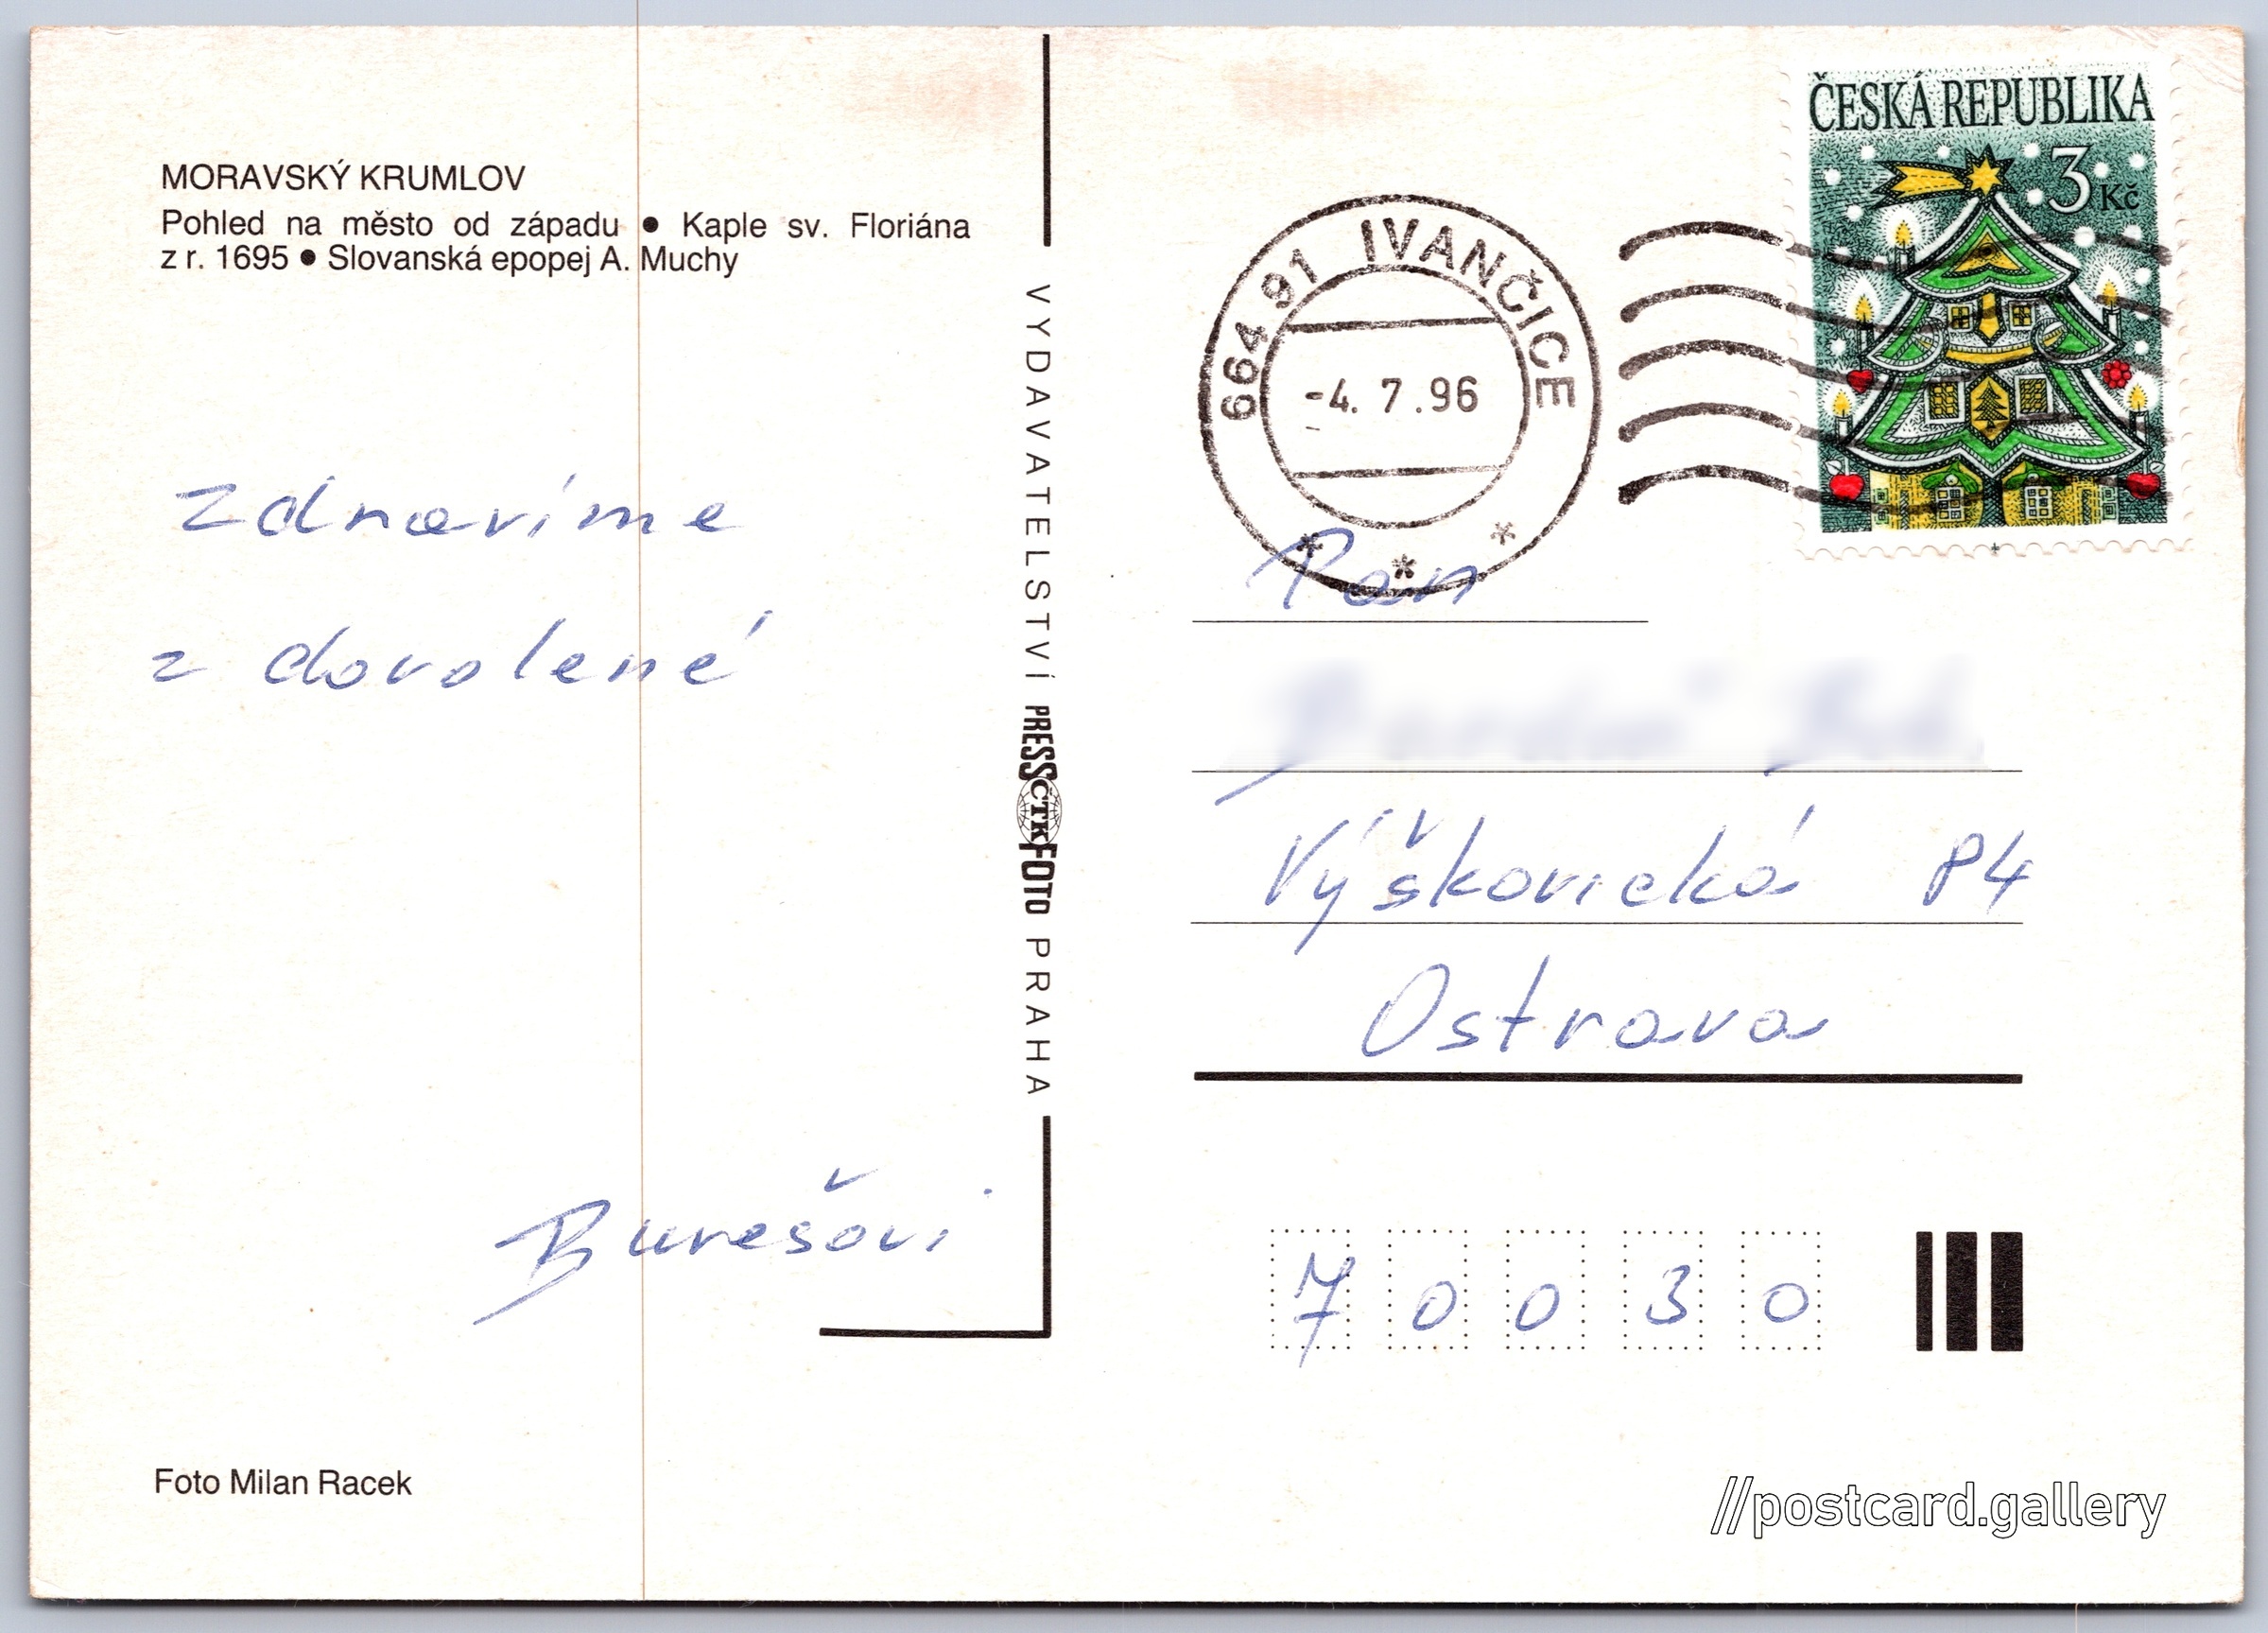 MORAVSKÝ KRUMLOV
Pohled na město od západu • Kaple sv. Floriána
z r. 1695 • Slovanská epopej A. Muchy
zdravíme
z dovolené
Burešovi
Foto Milan Racek
VYDAVATELSTVÍ PRESSČTKFOTO PRAHA
664 91 IVANČICE
-4. 7.96
* * *
ČESKÁ REPUBLIKA
3 Kč
Pan
Výškovická 84
Ostrava
7 0 0 3 0
//postcard.gallery